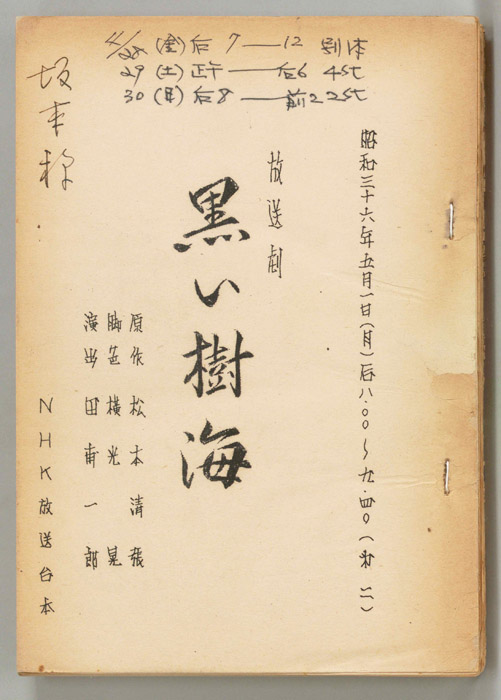 4/28 (金) 后 7 — 12
29 (土) 正午 — 后6 4st
30 (日) 后8 — 前2 2st
坂本様
昭和三十六年五月一日(月)后八.〇〇〜九.四〇(才二)
放送劇
黒い樹海
原作 松本清張
脚色 横光晃
演出 田甫一郎
NHK放送台本